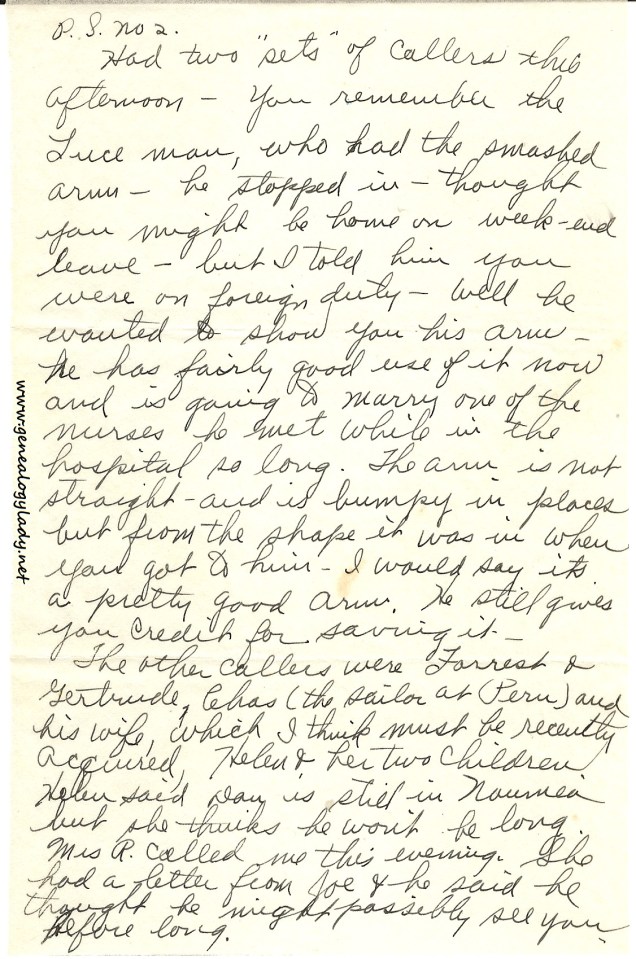 P.S. no 2.
Had two "sets" of callers this
afternoon - You remember the
Luce man, who had the smashed
arm - he stopped in - thought
you might be home on week-end
leave - but I told him you
were on foreign duty - Well he
wanted to show you his arm -
he has fairly good use of it now
and is going to marry one of the
nurses he met while in the
hospital so long. The arm is not
straight - and is bumpy in places
but from the shape it was in when
you got to him - I would say its
a pretty good arm. He still gives
you credit for saving it -
The other callers were Forrest &
Gertrude, Chas (the sailor at Peru) and
his wife, which I think must be recently
acquired, Helen & her two children
Helen said Dan is still in Noumea
but she thinks he won't be long.
Mrs R. called me this evening. She
had a letter from Joe & he said he
thought he might possibly see you
before long.
www.genealogylady.net